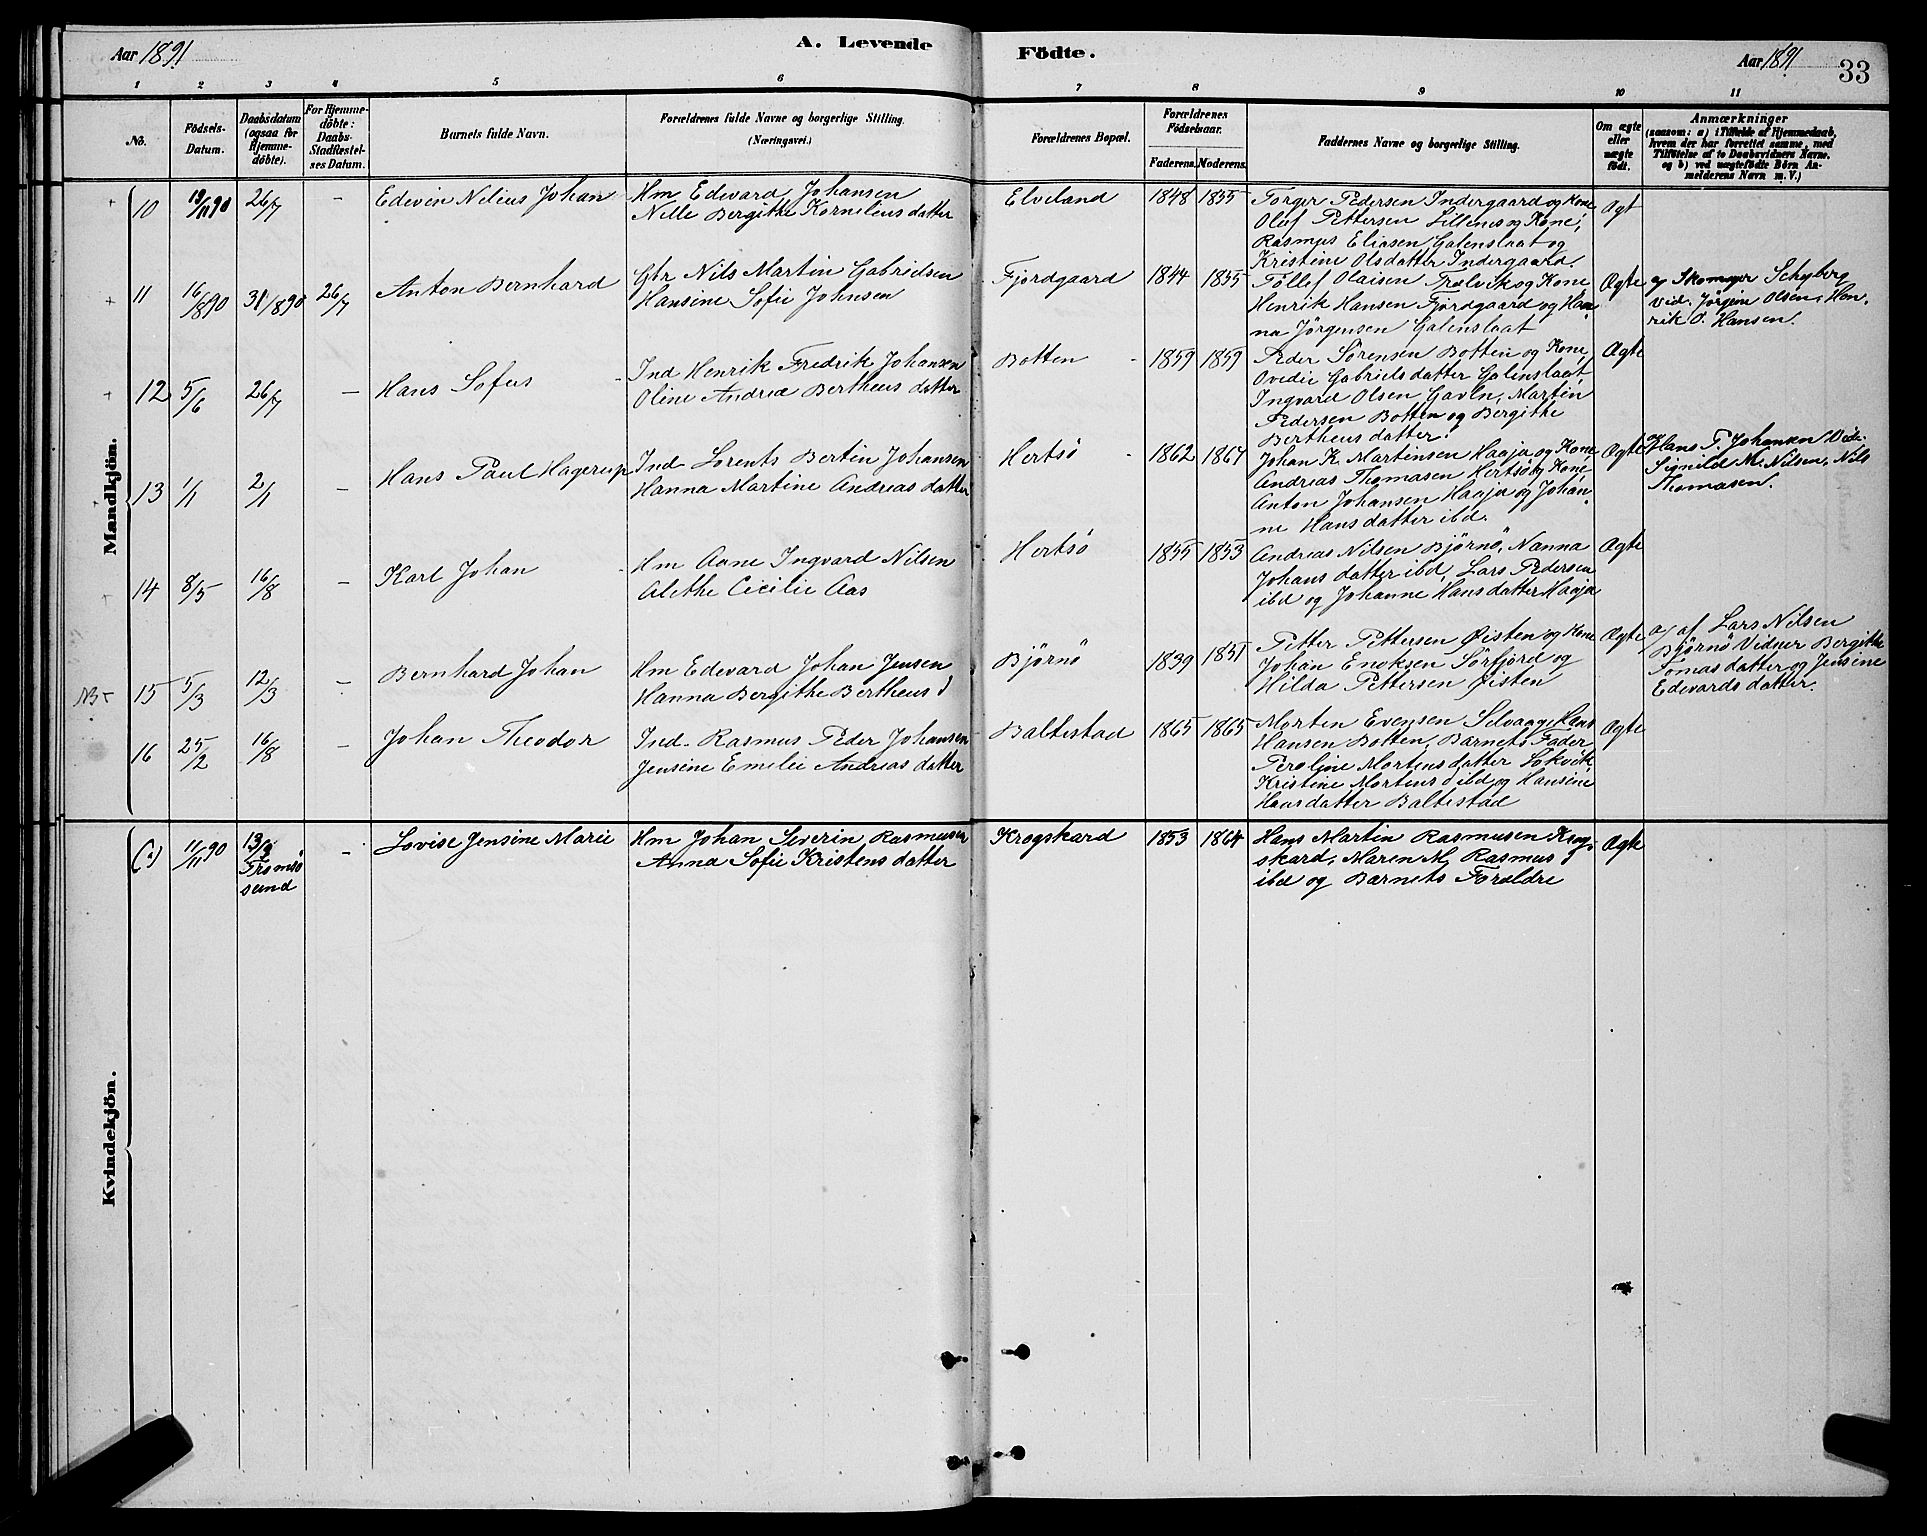 Aar 1891
A. Levende
Födte.
Aar 1891
33
1 2 3 4 5 6 7 8 9 10 11
No.
Födsels-
Datum.
Daabsdatum
(ogsaa for
Hjemme-
döbte).
For Hjemme-
döbte:
Daabs-
Stadfæstel-
ses Datum.
Barnets fulde Navn.
Forældrenes fulde Navne og borgerlige Stilling.
(Næringsvei.)
Forældrenes Bopæl.
Forældrenes
Födselsaar.
Faderens. Moderens.
Faddernes Navne og borgerlige Stilling.
Om ægte
eller
uægte
födt.
Anmærkninger
(saasom: a) i Tilfælde af Hjemmedaab,
hvem der har forrettet samme, med
Tilföielse af to Daabsvidners Navne.
og b) ved uægtefödte Börn An-
melderens Navn m. V.)
Mandkjön.
+ 10 19/11 90 26/7 - Edevin Nilius Johan
Hm Edevard Johansen
Nille Bergithe Kornelius datter
Elveland 1848 1855
Torger Pedersen Indergaard og Kone
Olef Pettersen Lillenes og Kone,
Rasmus Eliasen Galenslaat og
Kristine Olsdatter Indergaard.
Ægt
+ 11 16/8 90 31/8 90 26/7 Anton Bernhard
Gbr Nils Martin Gabrielsen
Hansine Sofie Johnsen
Fjordgaard 1844 1855
Tollef Olaisen Trælvik og Kone
Henrik Hansen Fjordgaard og Han
na Jörgensen Galenslaat
Ægte
af Skomager Schyberg
Vid. Jörgen Olsen, Hen-
rik O. Hansen.
+ 12 5/6 26/7 - Hans Sofus
Ind Henrik Fredrik Johansen
Oline Andrea Bertheus datter
Botten 1859 1859
Peder Sörensen Botten og Kone,
Ovedie Gabriels datter Galenslaat
Ingvard Olsen Gavln, Martin
Pedersen Botten og Bergithe
Bertheus datter.
Ægte
13 1/1 2/1 - Hans Paul Hagerup
Ind Lorents Bertin Johansen
Hanna Martine Andreas datter
Hertsö 1862 1867
Johan K. Martinsen Haaja og Kone
Andreas Thomasen Hertsö og Kone
Anton Johansen Haaja og Johan-
ne Hans datter ibd.
Ægte
af Hans P. Johansen Vid.
Signild M. Nilsen, Nils
Thomasen.
14 8/5 16/8 - Karl Johan
Hm Aane Ingvard Nilsen
Alethe Cicilie Aas
Hertsö 1855 1853
Andreas Nilsen Björnö, Nanna
Johans datter ibd, Lars Pedersen
ibd og Johanne Hans datter Haaja
Ægte
NB 15 5/3 12/3 - Bernhard Johan
Hm Edevard Johan Jensen
Hanna Bergithe Bertheus d
Björnö 1839 1851
Petter Pettersen Øisten og Kone
Johan Enoksen Sörfjord og
Hilda Pettersen Øisten
Ægte
a/ af Lars Nilsen
Björnö Vidner Bergithe
Tomas datter og Jensine
Edevards datter.
16 25/2 16/8 - Johan Theodor
Ind. Rasmus Peder Johansen
Jensine Emelie Andreas datter
Baltestad 1865 1865
Morten Evensen Selvaag, Hans
Hansen Botten, Barnets Fader
Peroline Mortens datter
Kristine Mortens d ibd og Hansine
Hans datter Baltestad
Ægte
Kvindekjön.
11/11 90 13/3
Tromsö
sund
- Lovise Jensine Marie
Hm Johan Severin Rasmusen
Anna Sofie Kristens datter
Krogskard 1853 1864
Hans Martin Rasmusen Krog-
skard, Maren M. Rasmus d
ibd og Barnets Forældre
Ægte